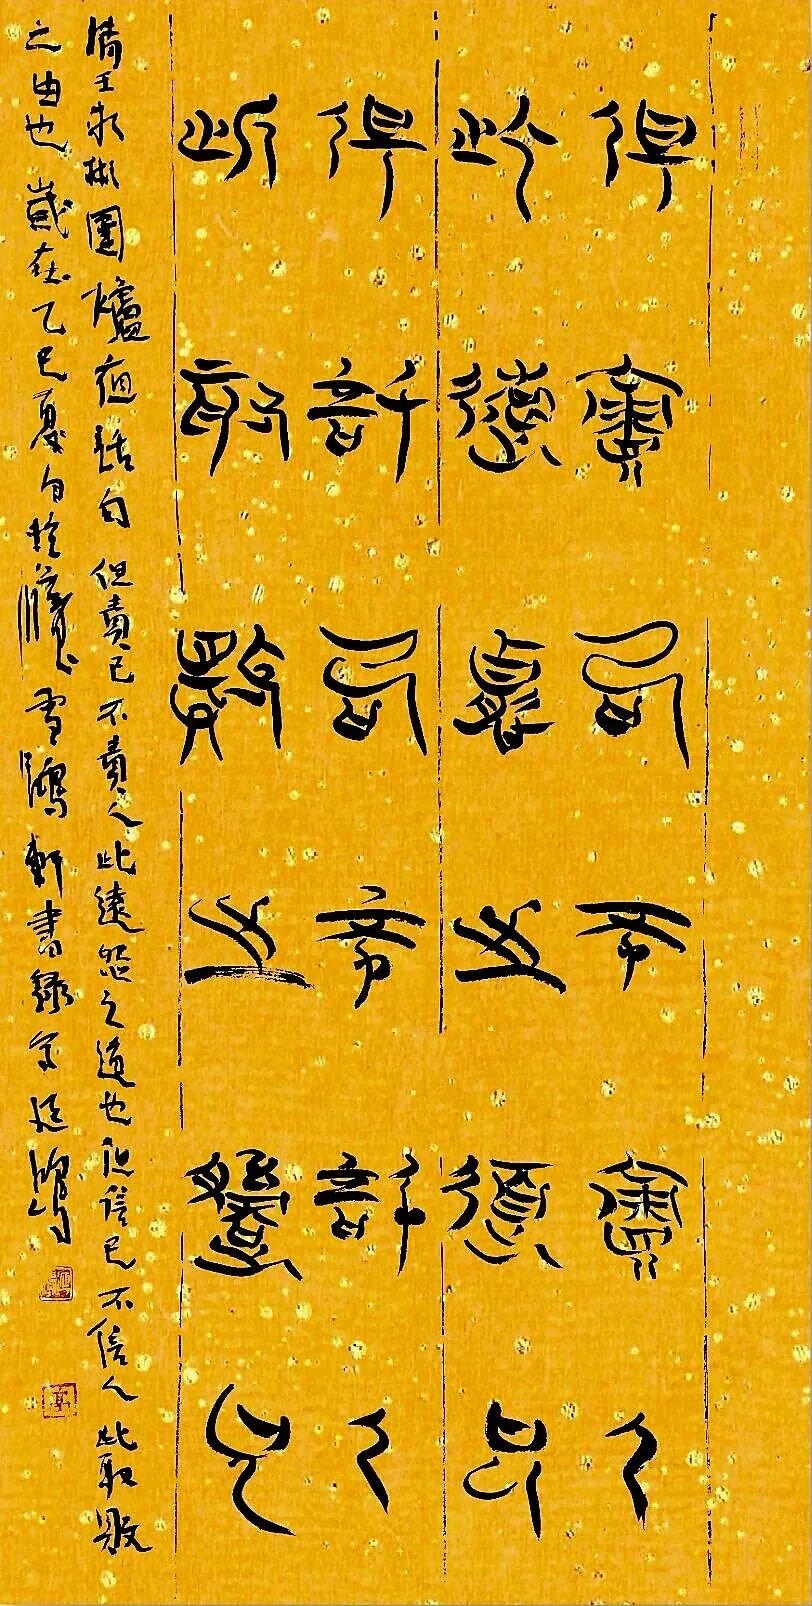 但責己不責人
此遠怨之道也
但信己不信人
此取敗之由也
清王永彬圍爐夜話句 但責己不責人 此遠怨之道也 但信己不信人 此取敗
之由也 歲在乙巳夏月於 雪鴻軒書